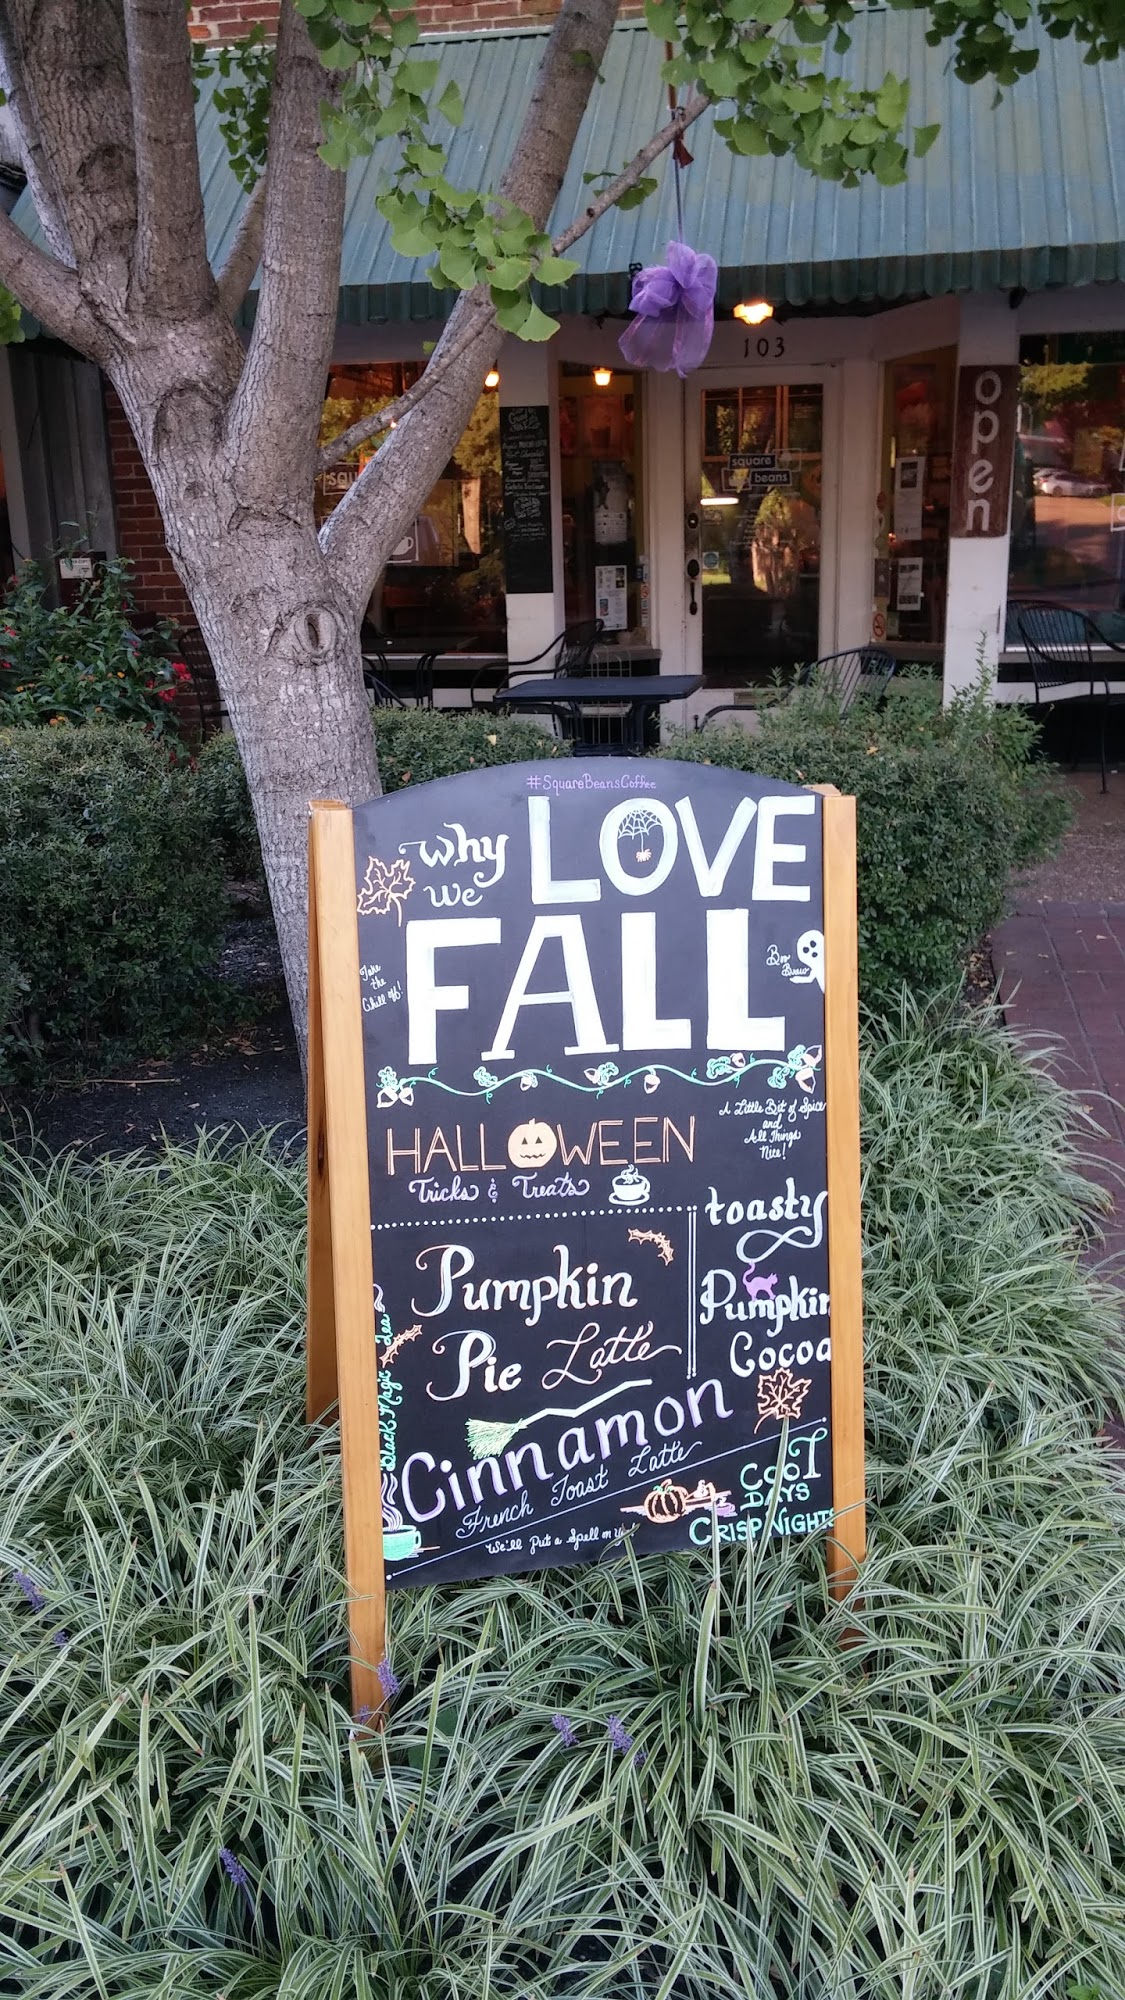 103
open
square
beans
squ
#SquareBeansCoffee
why
we
LOVE
FALL
Take
the
Chill off!
Boo
Brew
HALLOWEEN
Tricks & Treats
A Little Bit of Spice
and
All Things
Nice!
Pumpkin
Pie Latte
toasty
Pumpkin
Cocoa
Black Magic Tea
Cinnamon
French Toast Latte
We'll put a spell on you!
COOL
DAYS
CRISP NIGHTS